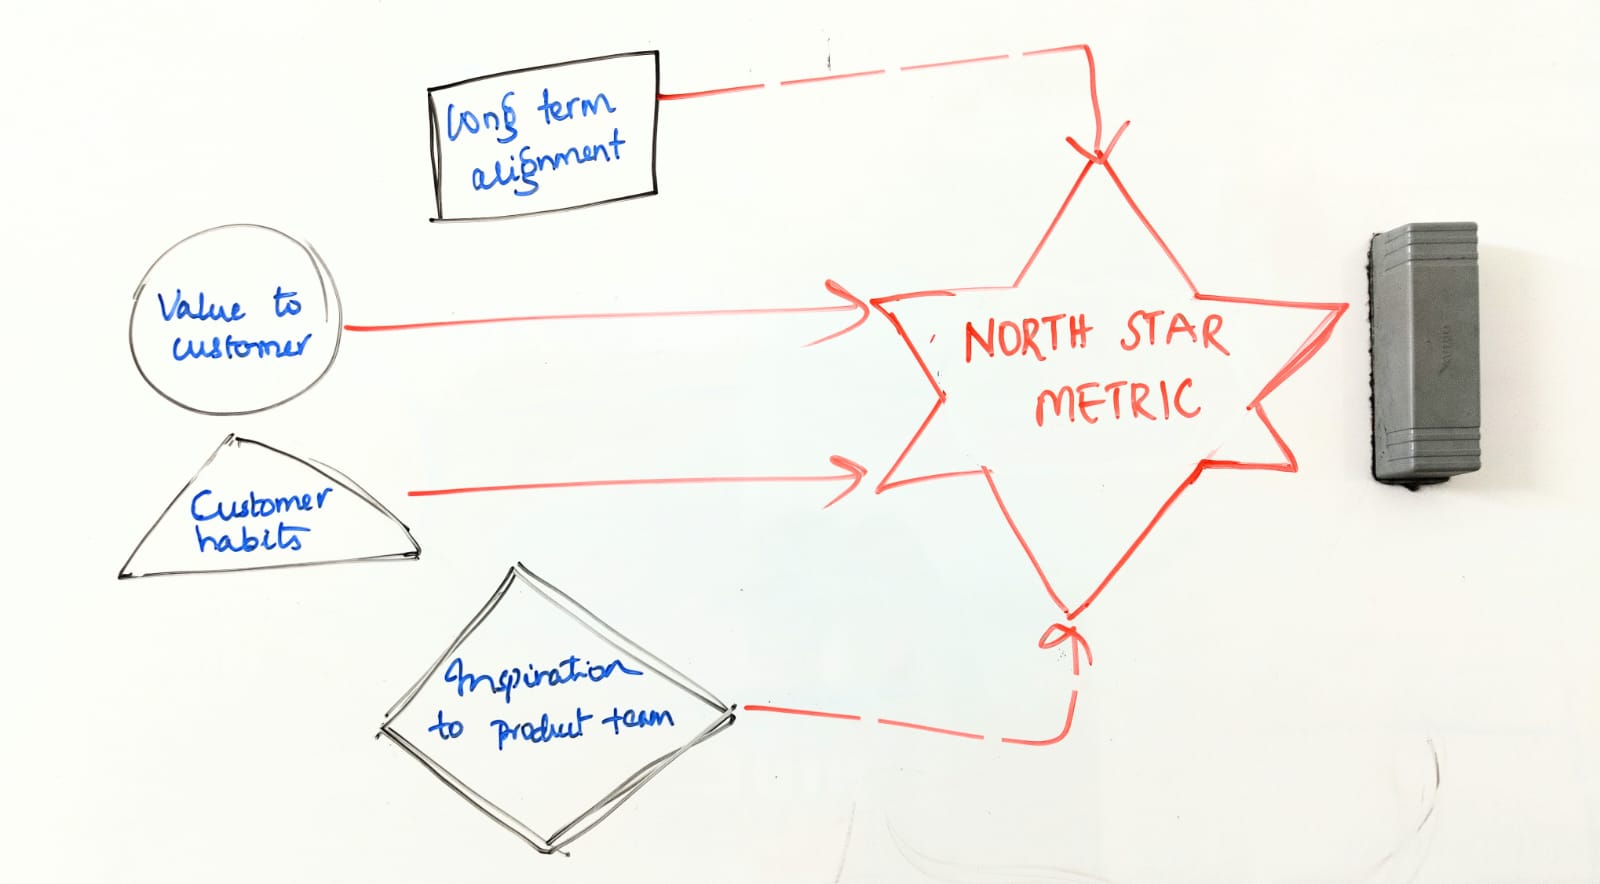 Long term
alignment
Value to
customer
Customer
habits
Inspiration
to product team
NORTH STAR
METRIC